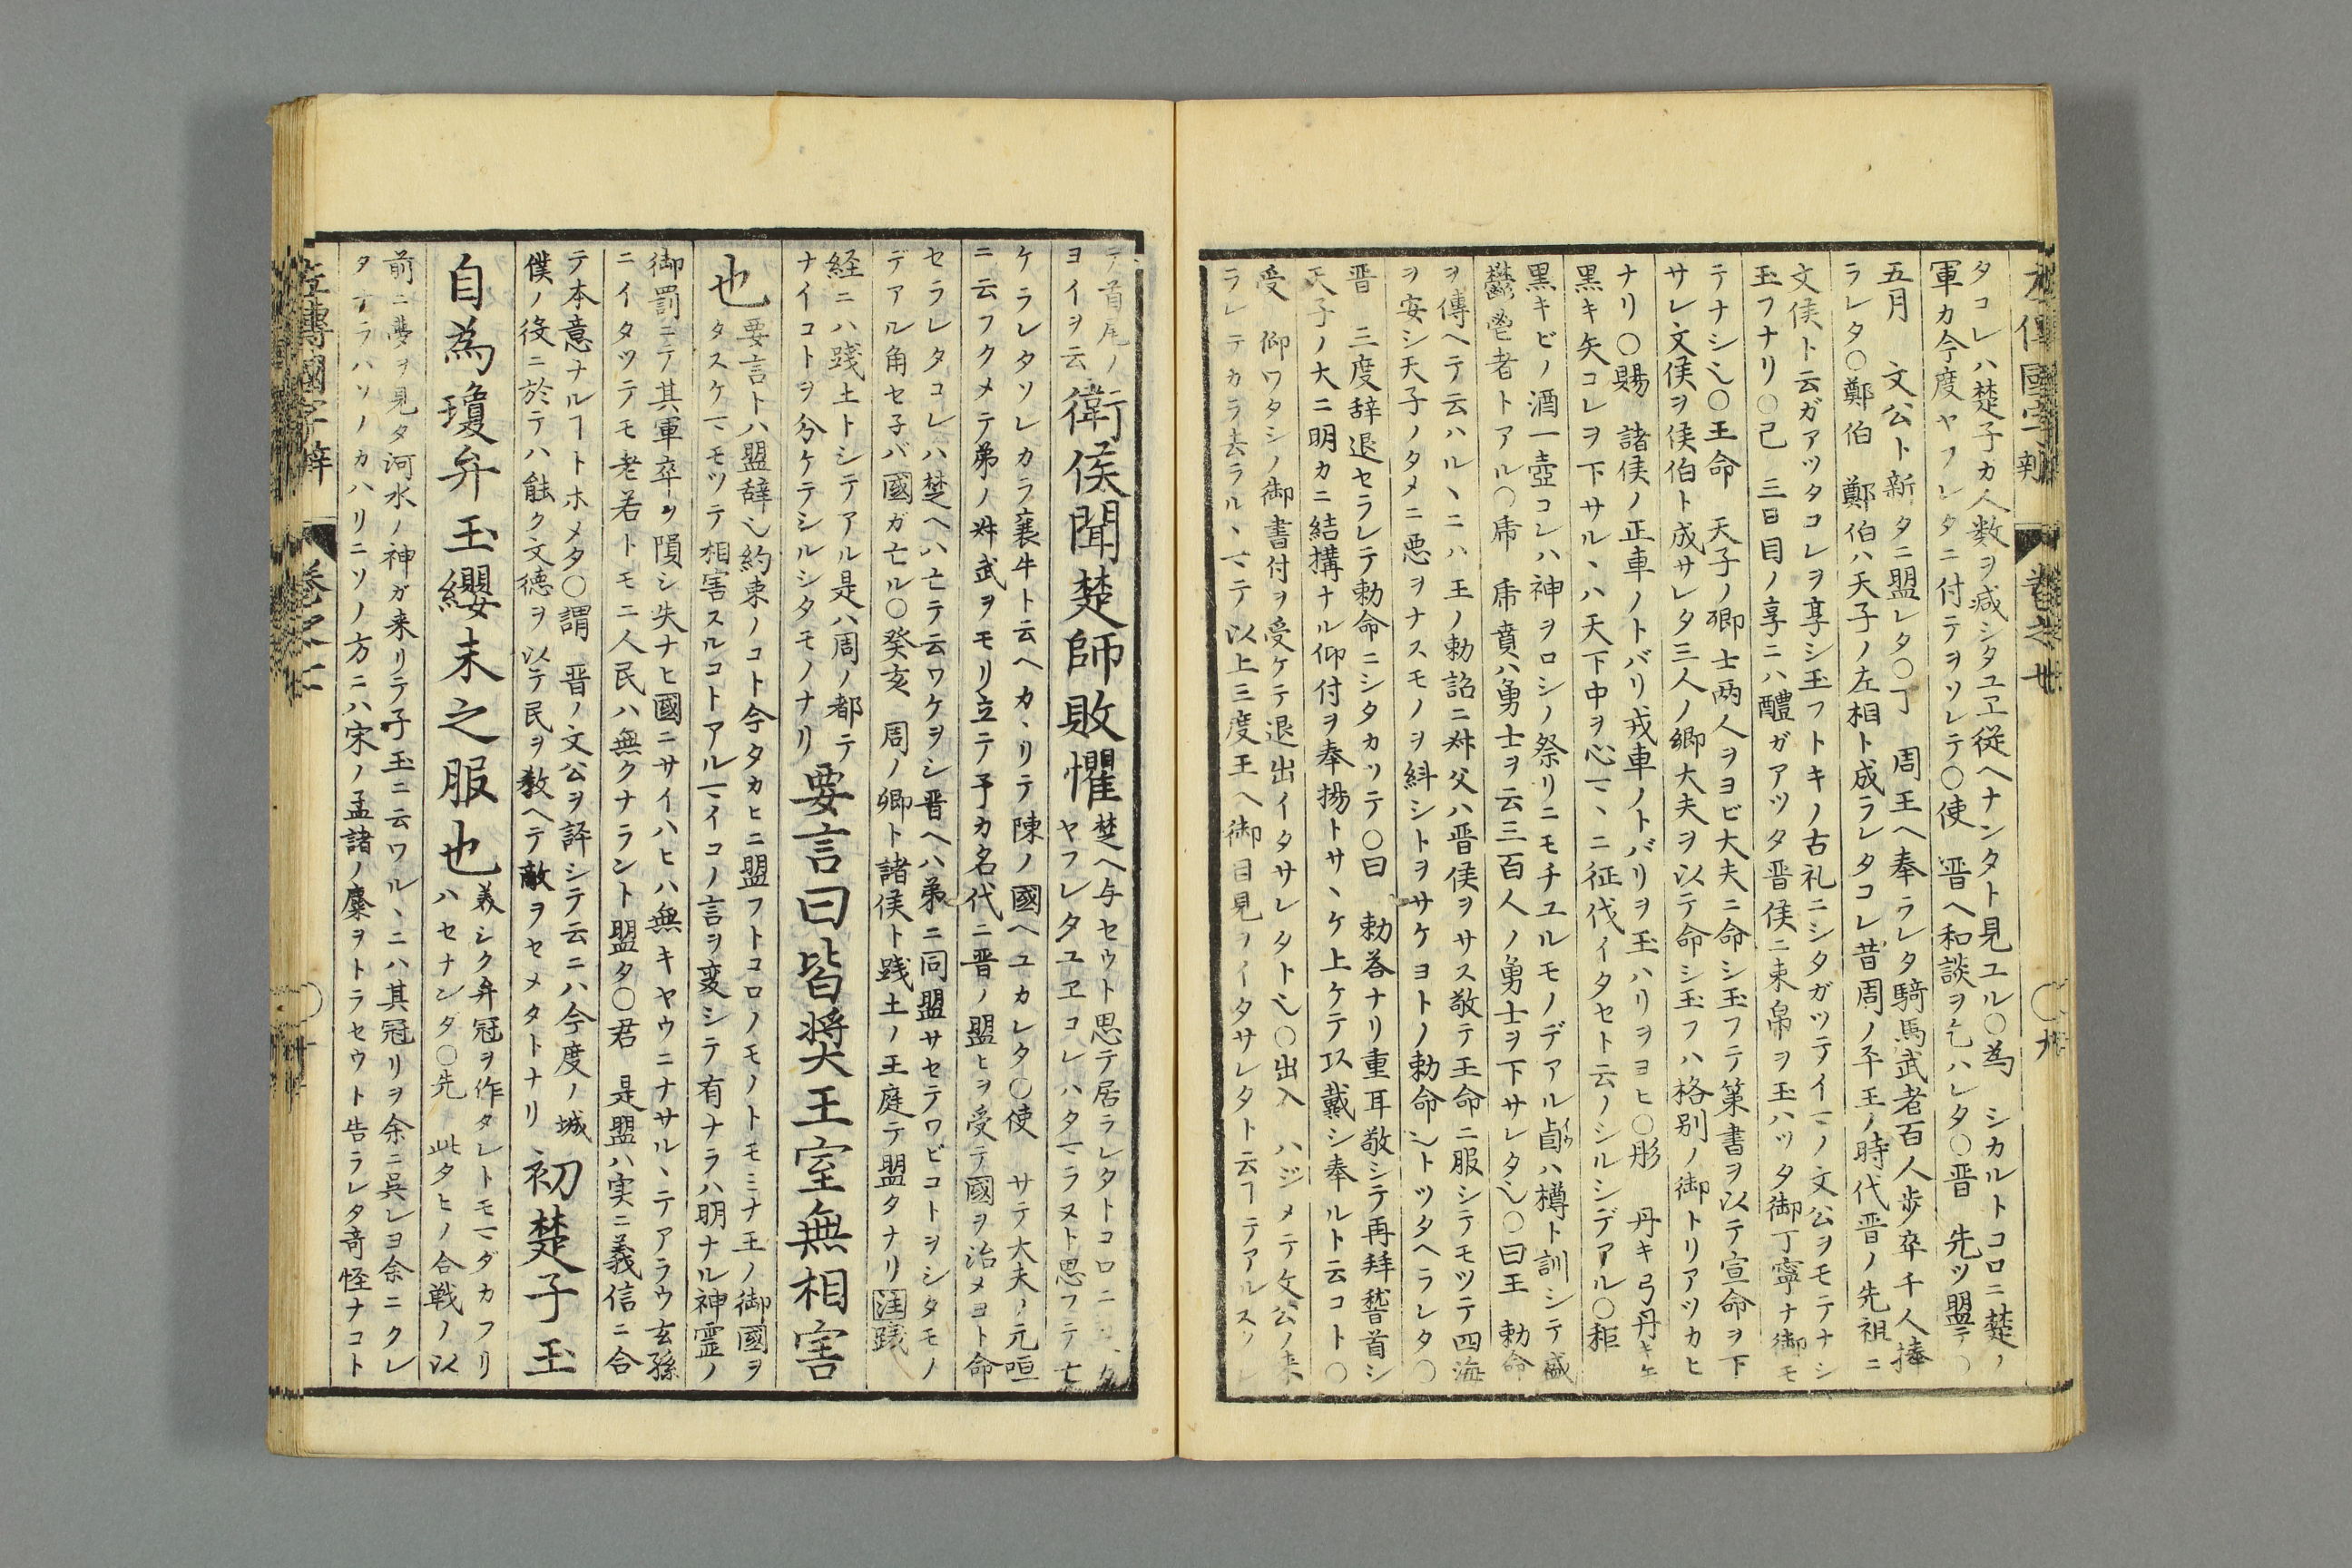 タコレハ楚子カ人数ヲ減シタユヱ従ヘナンタト見ユル〇為　シカルトコロニ楚ノ
軍カ今度ヤフレタニ付テヲソレテ〇使　晋ヘ和談ヲ乞ハレタ〇晋　先ツ盟テ〇
五月　文公ト新タニ盟レタ〇丁　周王ヘ奉ラレタ騎馬武者百人歩卒千人捧
ラレタ〇鄭伯　鄭伯ハ天子ノ左相ト成ラレタコレ昔周ノ平王ノ時代晋ノ先祖ニ
文侯ト云ガアツタコレヲ享シ玉フトキノ古礼ニシタガツテイマノ文公ヲモテナシ
玉フナリ〇己　三日目ノ享ニハ醴ガアツタ晋侯ニ束帛ヲ玉ハツタ御丁寧ナ御モ
テナシ也〇王命　天子ノ卿士両人ヲヨビ大夫ニ命シ玉フテ策書ヲ以テ宣命ヲ下
サレ文侯ヲ侯伯ト成サレタ三人ノ卿大夫ヲ以テ命シ玉フハ格別ノ御トリアツカヒ
ナリ〇賜　諸侯ノ正車ノトバリ戎車ノトバリヲ玉ハリヲヨヒ〇彤　丹キ弓丹キ矢
黒キ矢コレヲ下サルヽハ天下中ヲ心マヽニ征伐イタセト云ノシルシデアル〇秬
黒キビノ酒一壺コレハ神ヲロシノ祭リニモチユルモノデアル卣ハ樽ト訓シテ盛
鬱鬯者トアル〇虎　虎賁ハ勇士ヲ云三百人ノ勇士ヲ下サレタ也〇曰王　勅命
ヲ傳ヘテ云ハルヽニハ王ノ勅詔ニ叔父ハ晋侯ヲサス敬テ王命ニ服シテモツテ四海
ヲ安シ天子ノタメニ悪ヲナスモノヲ糾シトヲサケヨトノ勅命也トツタヘラレタ〇
晋　三度辞退セラレテ勅命ニシタカツテ〇曰　勅答ナリ重耳敬シテ再拜稽首シ
天子ノ大ニ明カニ結構ナル仰付ヲ奉揚トサヽケ上ケテ以戴シ奉ルト云コト〇
受　仰ワタシノ御書付ヲ受ケテ退出イタサレタト也〇出入　ハジメテ文公ノ来
ラレテカラ去ラルヽマテ以上三度王ヘ御目見ノイタサレタト云ヿテアル
テ首尾ノ
ヨイヲ云　衛侯聞楚師敗懼　楚ヘ与セウト思テ居ラレタトコロニ
ヤフレタユヱコレハタマラヌト思フテ亡
ケラレタソレカラ襄牛ト云ヘカヽリテ陳ノ國ヘユカレタ〇使　サテ大夫ノ元咺
ニ云フクメテ弟ノ叔武ヲモリ立テ予カ名代ニ晋ノ盟ヒヲ受テ國ヲ治メヨト命
セラレタコレハ楚ヘハ亡テ云ワケヲシ晋ヘハ弟ニ同盟サセテワビコトヲシタモノ
デアル角セ子バ國ガ亡ル〇癸亥　周ノ卿ト諸侯ト践土ノ王庭テ盟タナリ　注践
経ニハ践土トシテアル是ハ周ノ都テ
ナイコトヲ分ケテシルシタモノナリ　要言曰皆奨王室無相害
也　要言トハ盟辞也約束ノコト今タカヒニ盟フトコロノモノトモミナ王ノ御國ヲ
タスケマモツテ相害スルコトアルマイコノ言ヲ変シテ有ナラハ明ナル神霊ノ
御罰ニテ其軍卒ヲ隕シ失ナヒ國ニサイハヒハ無キヤウニナサルヽテアラウ玄孫
ニイタツテモ老若トモニ人民ハ無クナラント盟タ〇君　是盟ハ実ニ義信ニ合
テ本意ナルヿトホメタ〇謂　晋ノ文公ヲ評シテ云ニハ今度ノ城
僕ノ役ニ於テハ能ク文徳ヲ以テ民ヲ教ヘテ敵ヲセメタトナリ　初楚子玉
自為瓊弁玉纓未之服也　美シク弁冠ヲ作タレトモマダカフリ
ハセナンダ〇先　此タヒノ合戦ノ以
前ニ夢ヲ見タ河水ノ神ガ来リテ子玉ニ云ワルヽニハ其冠リヲ余ニ呉レヨ余ニクレ
タナラハソノカハリニソノ方ニハ宋ノ孟諸ノ麋ヲトラセウト告ラレタ奇怪ナコト
左傳國字辯　巻之七